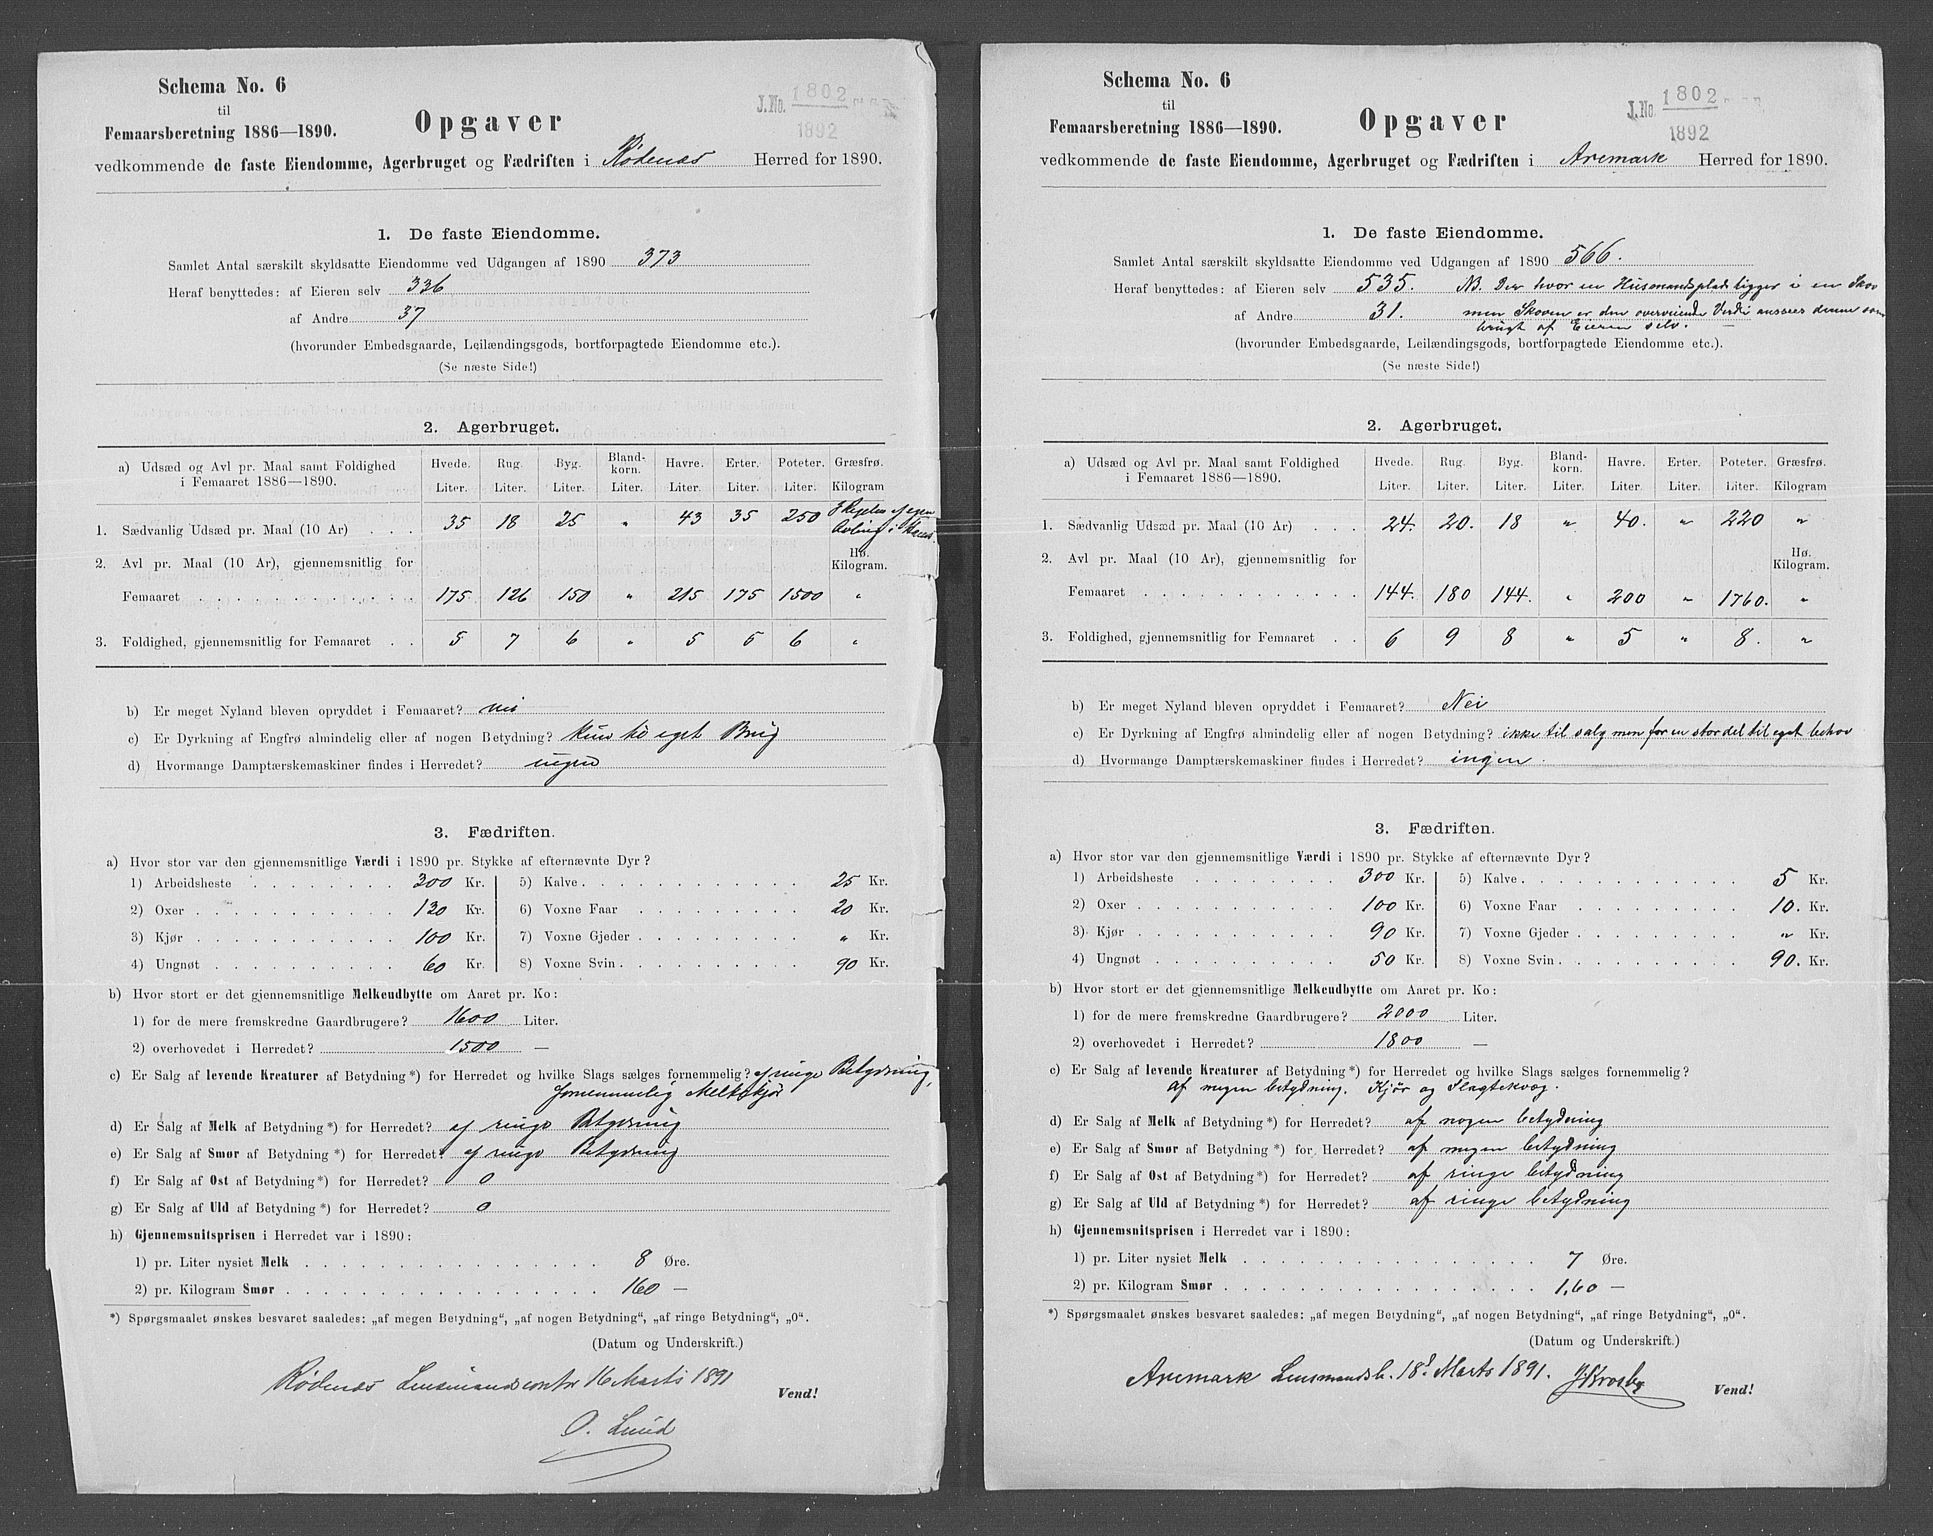 Schema No. 6
til
Femaarsberetning 1886—1890.
Opgaver
J.No. 1802
1892
vedkommende de faste Eiendomme, Agerbruget og Fædriften i Rødenæs Herred for 1890.
1. De faste Eiendomme.
Samlet Antal særskilt skyldsatte Eiendomme ved Udgangen af 1890 373
Heraf benyttedes: af Eieren selv 336
af Andre 37
(hvorunder Embedsgaarde, Leilændingsgods, bortforpagtede Eiendomme etc.).
(Se næste Side!)
2. Agerbruget.
a) Udsæd og Avl pr. Maal samt Foldighed i Femaaret 1886—1890. Hvede. Liter. Rug. Liter. Byg. Liter. Bland-korn. Liter. Havre. Liter. Erter. Liter. Poteter. Liter. Græsfrø. Kilogram
1. Sædvanlig Udsæd pr. Maal (10 Ar) 35 18 25 „ 43 35 250 I Regelen af egen Avling
Hø. Kilogram.
2. Avl pr. Maal (10 Ar), gjennemsnitlig for
Femaaret 175 126 150 „ 215 175 1500 „
3. Foldighed, gjennemsnitlig for Femaaret 5 7 6 „ 5 5 6 „
b) Er meget Nyland bleven opryddet i Femaaret? nei
c) Er Dyrkning af Engfrø almindelig eller af nogen Betydning? kun til eget Brug
d) Hvormange Damptærskemaskiner findes i Herredet? ingen
3. Fædriften.
a) Hvor stor var den gjennemsnitlige Værdi i 1890 pr. Stykke af efternævnte Dyr?
1) Arbeidsheste 300 Kr. 5) Kalve 25 Kr.
2) Oxer 130 Kr. 6) Voxne Faar 20 Kr.
3) Kjør 100 Kr. 7) Voxne Gjeder „ Kr.
4) Ungnøt 60 Kr. 8) Voxne Svin 90 Kr.
b) Hvor stort er det gjennemsnitlige Melkeudbytte om Aaret pr. Ko:
1) for de mere fremskredne Gaardbrugere? 1600 Liter.
2) overhovedet i Herredet? 1500 —
c) Er Salg af levende Kreaturer af Betydning*) for Herredet og hvilke Slags sælges fornemmelig? af ringe Betydning,
fornemmelig Melkekjør
d) Er Salg af Melk af Betydning*) for Herredet? af ringe Betydning
e) Er Salg af Smør af Betydning*) for Herredet? af ringe Betydning
f) Er Salg af Ost af Betydning*) for Herredet? 0
g) Er Salg af Uld af Betydning*) for Herredet? 0
h) Gjennemsnitsprisen i Herredet var i 1890:
1) pr. Liter nysiet Melk 8 Øre.
2) pr. Kilogram Smør 160 —
*) Spørgsmaalet ønskes besvaret saaledes: „af megen Betydning“, „af nogen Betydning“, „af ringe Betydning“, „0“.
(Datum og Underskrift.)
Rødenæs Lensmandscontor 16 Marts 1891
Vend!
O. Lund
Schema No. 6
til
Femaarsberetning 1886—1890.
Opgaver
J.No. 1802
1892
vedkommende de faste Eiendomme, Agerbruget og Fædriften i Aremark Herred for 1890.
1. De faste Eiendomme.
Samlet Antal særskilt skyldsatte Eiendomme ved Udgangen af 1890 566.
Heraf benyttedes: af Eieren selv 535. NB. Der hvor en Husmandsplads ligger i en Skov
af Andre 31. men Skoven er den overveiende Verdi ansees denne som
brugt af Eieren selv. —
(hvorunder Embedsgaarde, Leilændingsgods, bortforpagtede Eiendomme etc.).
(Se næste Side!)
2. Agerbruget.
a) Udsæd og Avl pr. Maal samt Foldighed i Femaaret 1886—1890. Hvede. Liter. Rug. Liter. Byg. Liter. Bland-korn. Liter. Havre. Liter. Erter. Liter. Poteter. Liter. Græsfrø. Kilogram
1. Sædvanlig Udsæd pr. Maal (10 Ar) 24. 20. 18 „ 40. „ 220 „
Hø. Kilogram.
2. Avl pr. Maal (10 Ar), gjennemsnitlig for
Femaaret 144. 180 144. „ 200 „ 1760. „
3. Foldighed, gjennemsnitlig for Femaaret 6 9 8 „ 5 „ 8. „
b) Er meget Nyland bleven opryddet i Femaaret? Nei
c) Er Dyrkning af Engfrø almindelig eller af nogen Betydning? ikke til salg men for en stor del til eget behov
d) Hvormange Damptærskemaskiner findes i Herredet? ingen.
3. Fædriften.
a) Hvor stor var den gjennemsnitlige Værdi i 1890 pr. Stykke af efternævnte Dyr?
1) Arbeidsheste 300 Kr. 5) Kalve 5 Kr.
2) Oxer 100 Kr. 6) Voxne Faar 10. Kr.
3) Kjør 90 Kr. 7) Voxne Gjeder „ Kr.
4) Ungnøt 50 Kr. 8) Voxne Svin 90. Kr.
b) Hvor stort er det gjennemsnitlige Melkeudbytte om Aaret pr. Ko:
1) for de mere fremskredne Gaardbrugere? 2000 Liter.
2) overhovedet i Herredet? 1800 —
c) Er Salg af levende Kreaturer af Betydning*) for Herredet og hvilke Slags sælges fornemmelig?
af megen betydning. Kjør og Slagtekvæg.
d) Er Salg af Melk af Betydning*) for Herredet? af nogen betydning
e) Er Salg af Smør af Betydning*) for Herredet? af megen betydning
f) Er Salg af Ost af Betydning*) for Herredet? af ringe betydning
g) Er Salg af Uld af Betydning*) for Herredet? af ringe betydning
h) Gjennemsnitsprisen i Herredet var i 1890:
1) pr. Liter nysiet Melk 7 Øre.
2) pr. Kilogram Smør 1,60 —
*) Spørgsmaalet ønskes besvaret saaledes: „af megen Betydning“, „af nogen Betydning“, „af ringe Betydning“, „0“.
(Datum og Underskrift.)
Aremark Lensmandsb. 18d Marts 1891. Krosby
Vend!